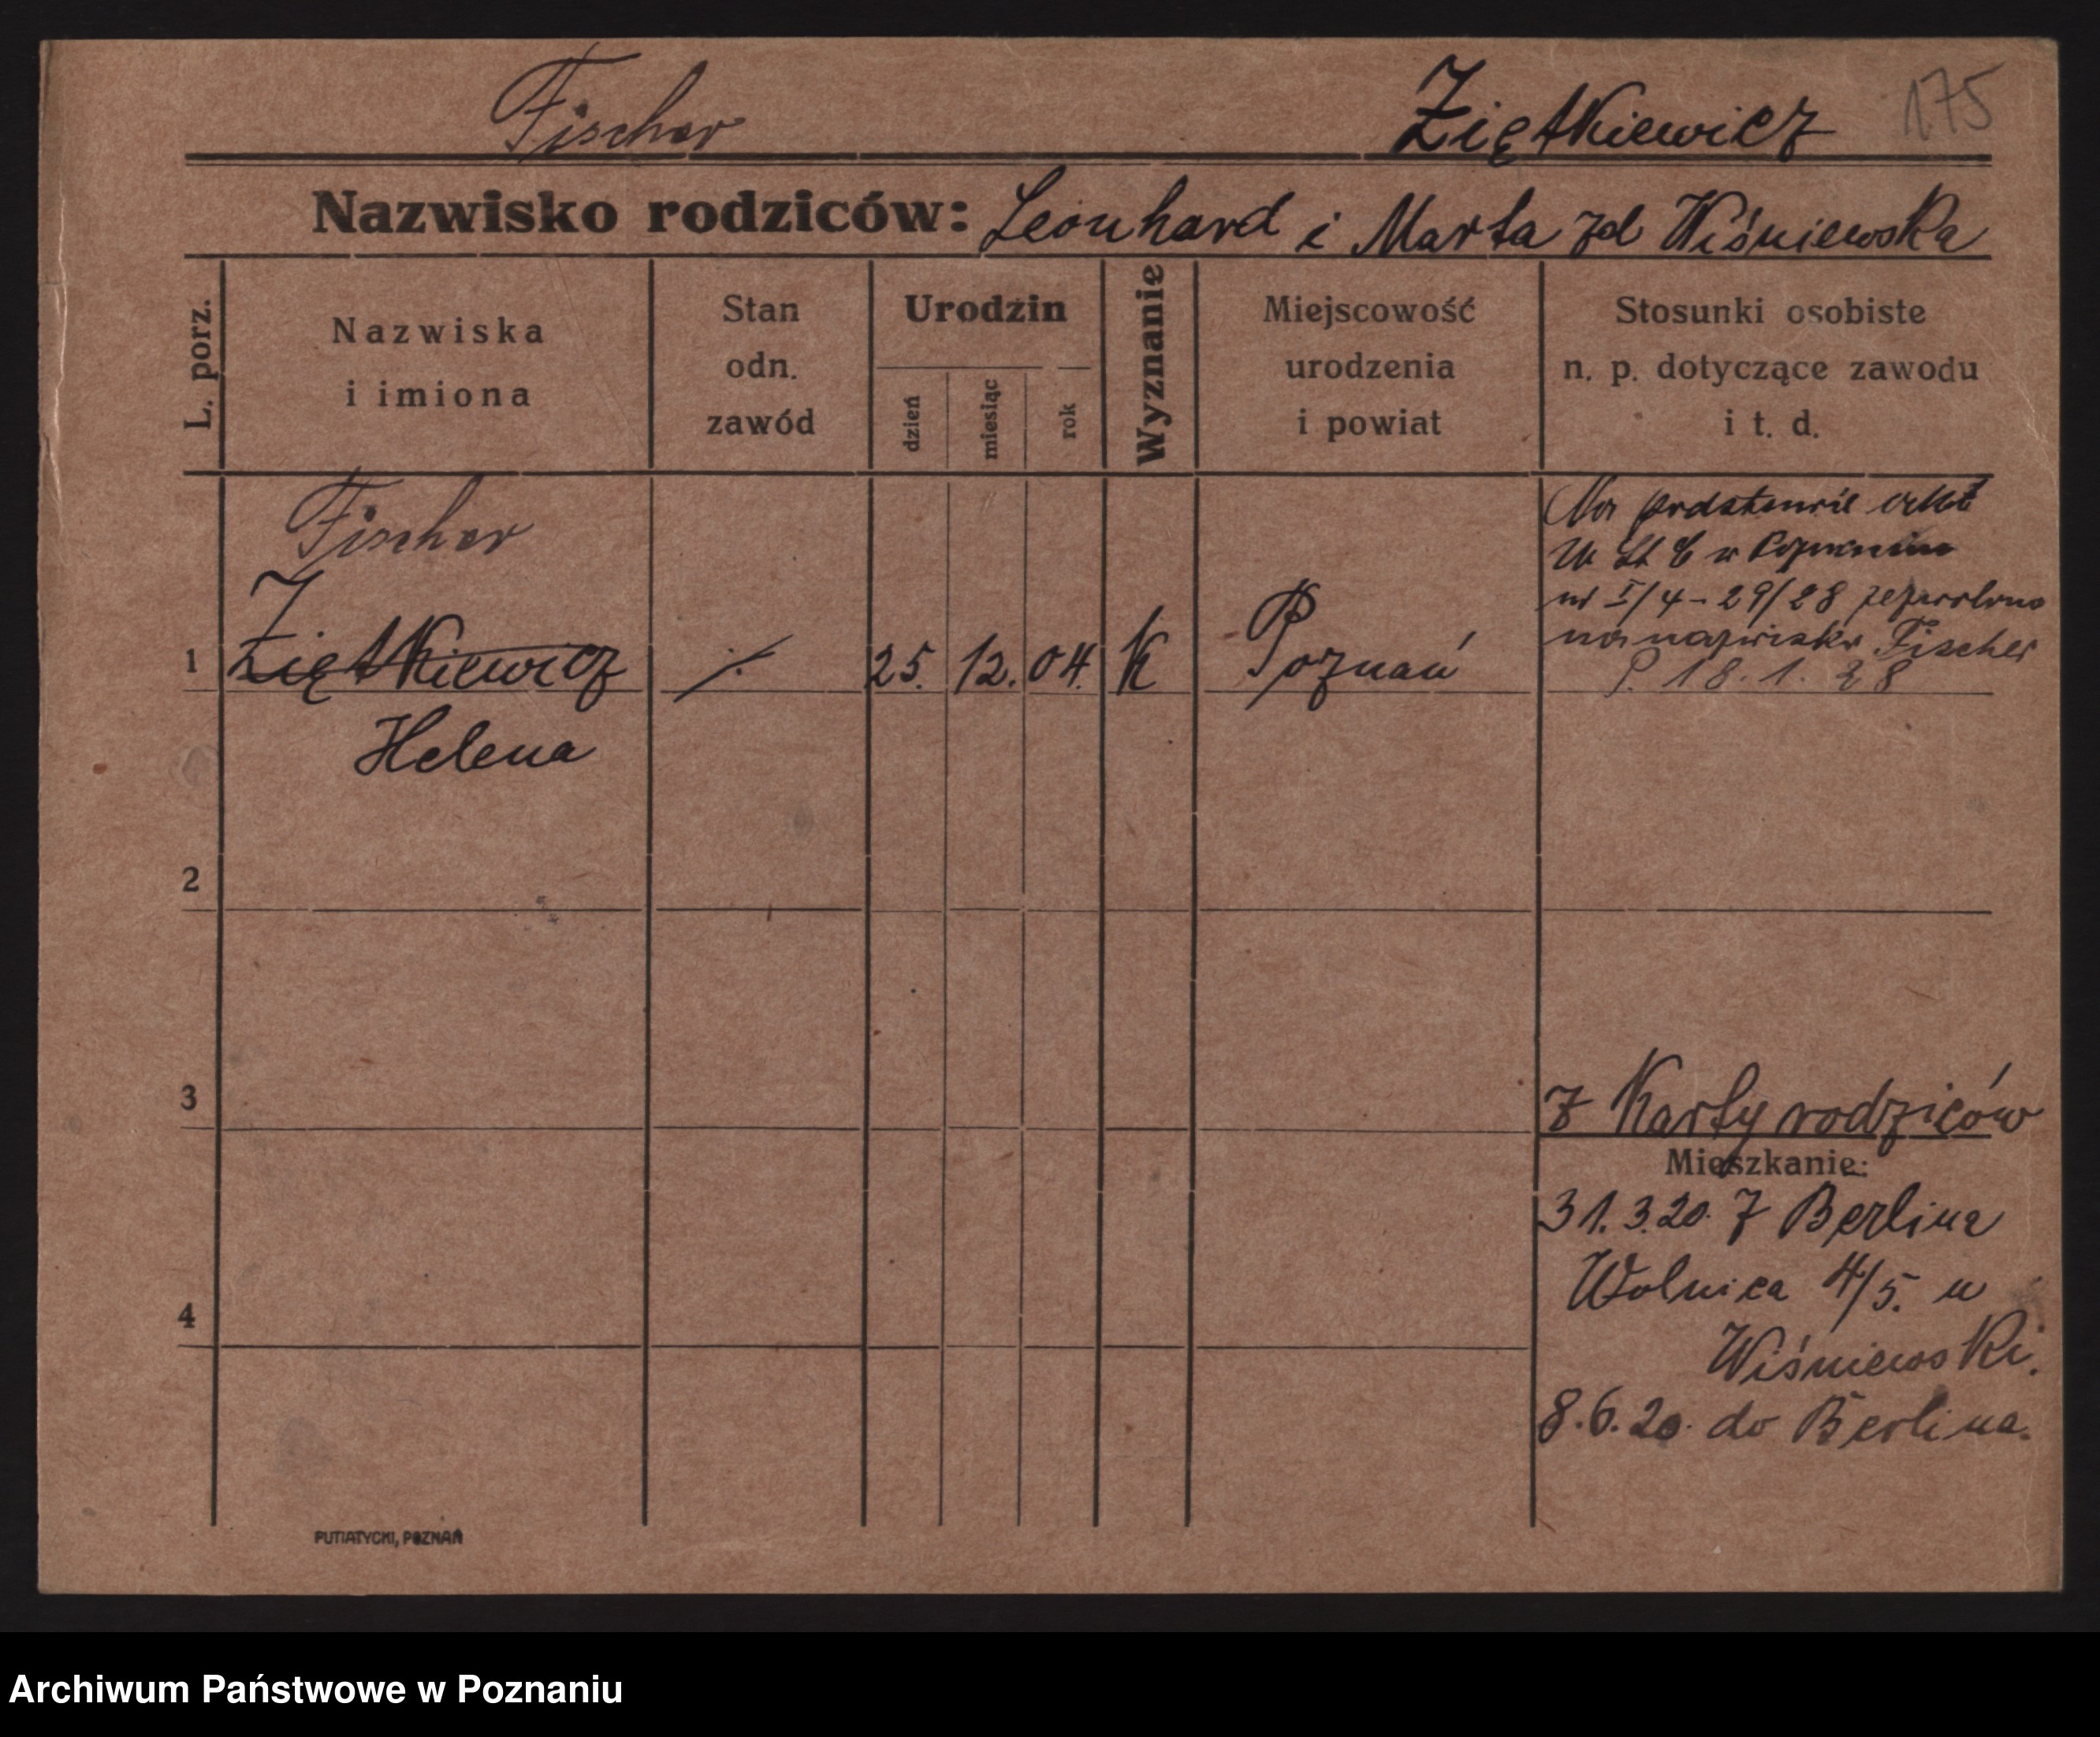 Fischer Ziętkiewicz 175
Nazwisko rodziców: Leonhard i Marta zd Wiśniewska
L. porz.
Nazwiska
i imiona
Stan
odn.
zawód
Urodzin
dzień
miesiąc
rok
Wyznanie
Miejscowość
urodzenia
i powiat
Stosunki osobiste
n. p. dotyczące zawodu
i t. d.
Fischer
1 Ziętkiewicz ./. 25. 12. 04. K Poznań
Helena
Na podstawie akt
U St C w Poznaniu
nr I/4-29/28 zezwolono
na nazwisko Fischer
P. 18.1.28
2
3
z Karty rodziców
Mieszkanie:
31.3.20. z Berlina
Wolnica 4/5. u
Wiśniewski.
8.6.20. do Berlina.
4
PUTIATYCKI, POZNAŃ
Archiwum Państwowe w Poznaniu